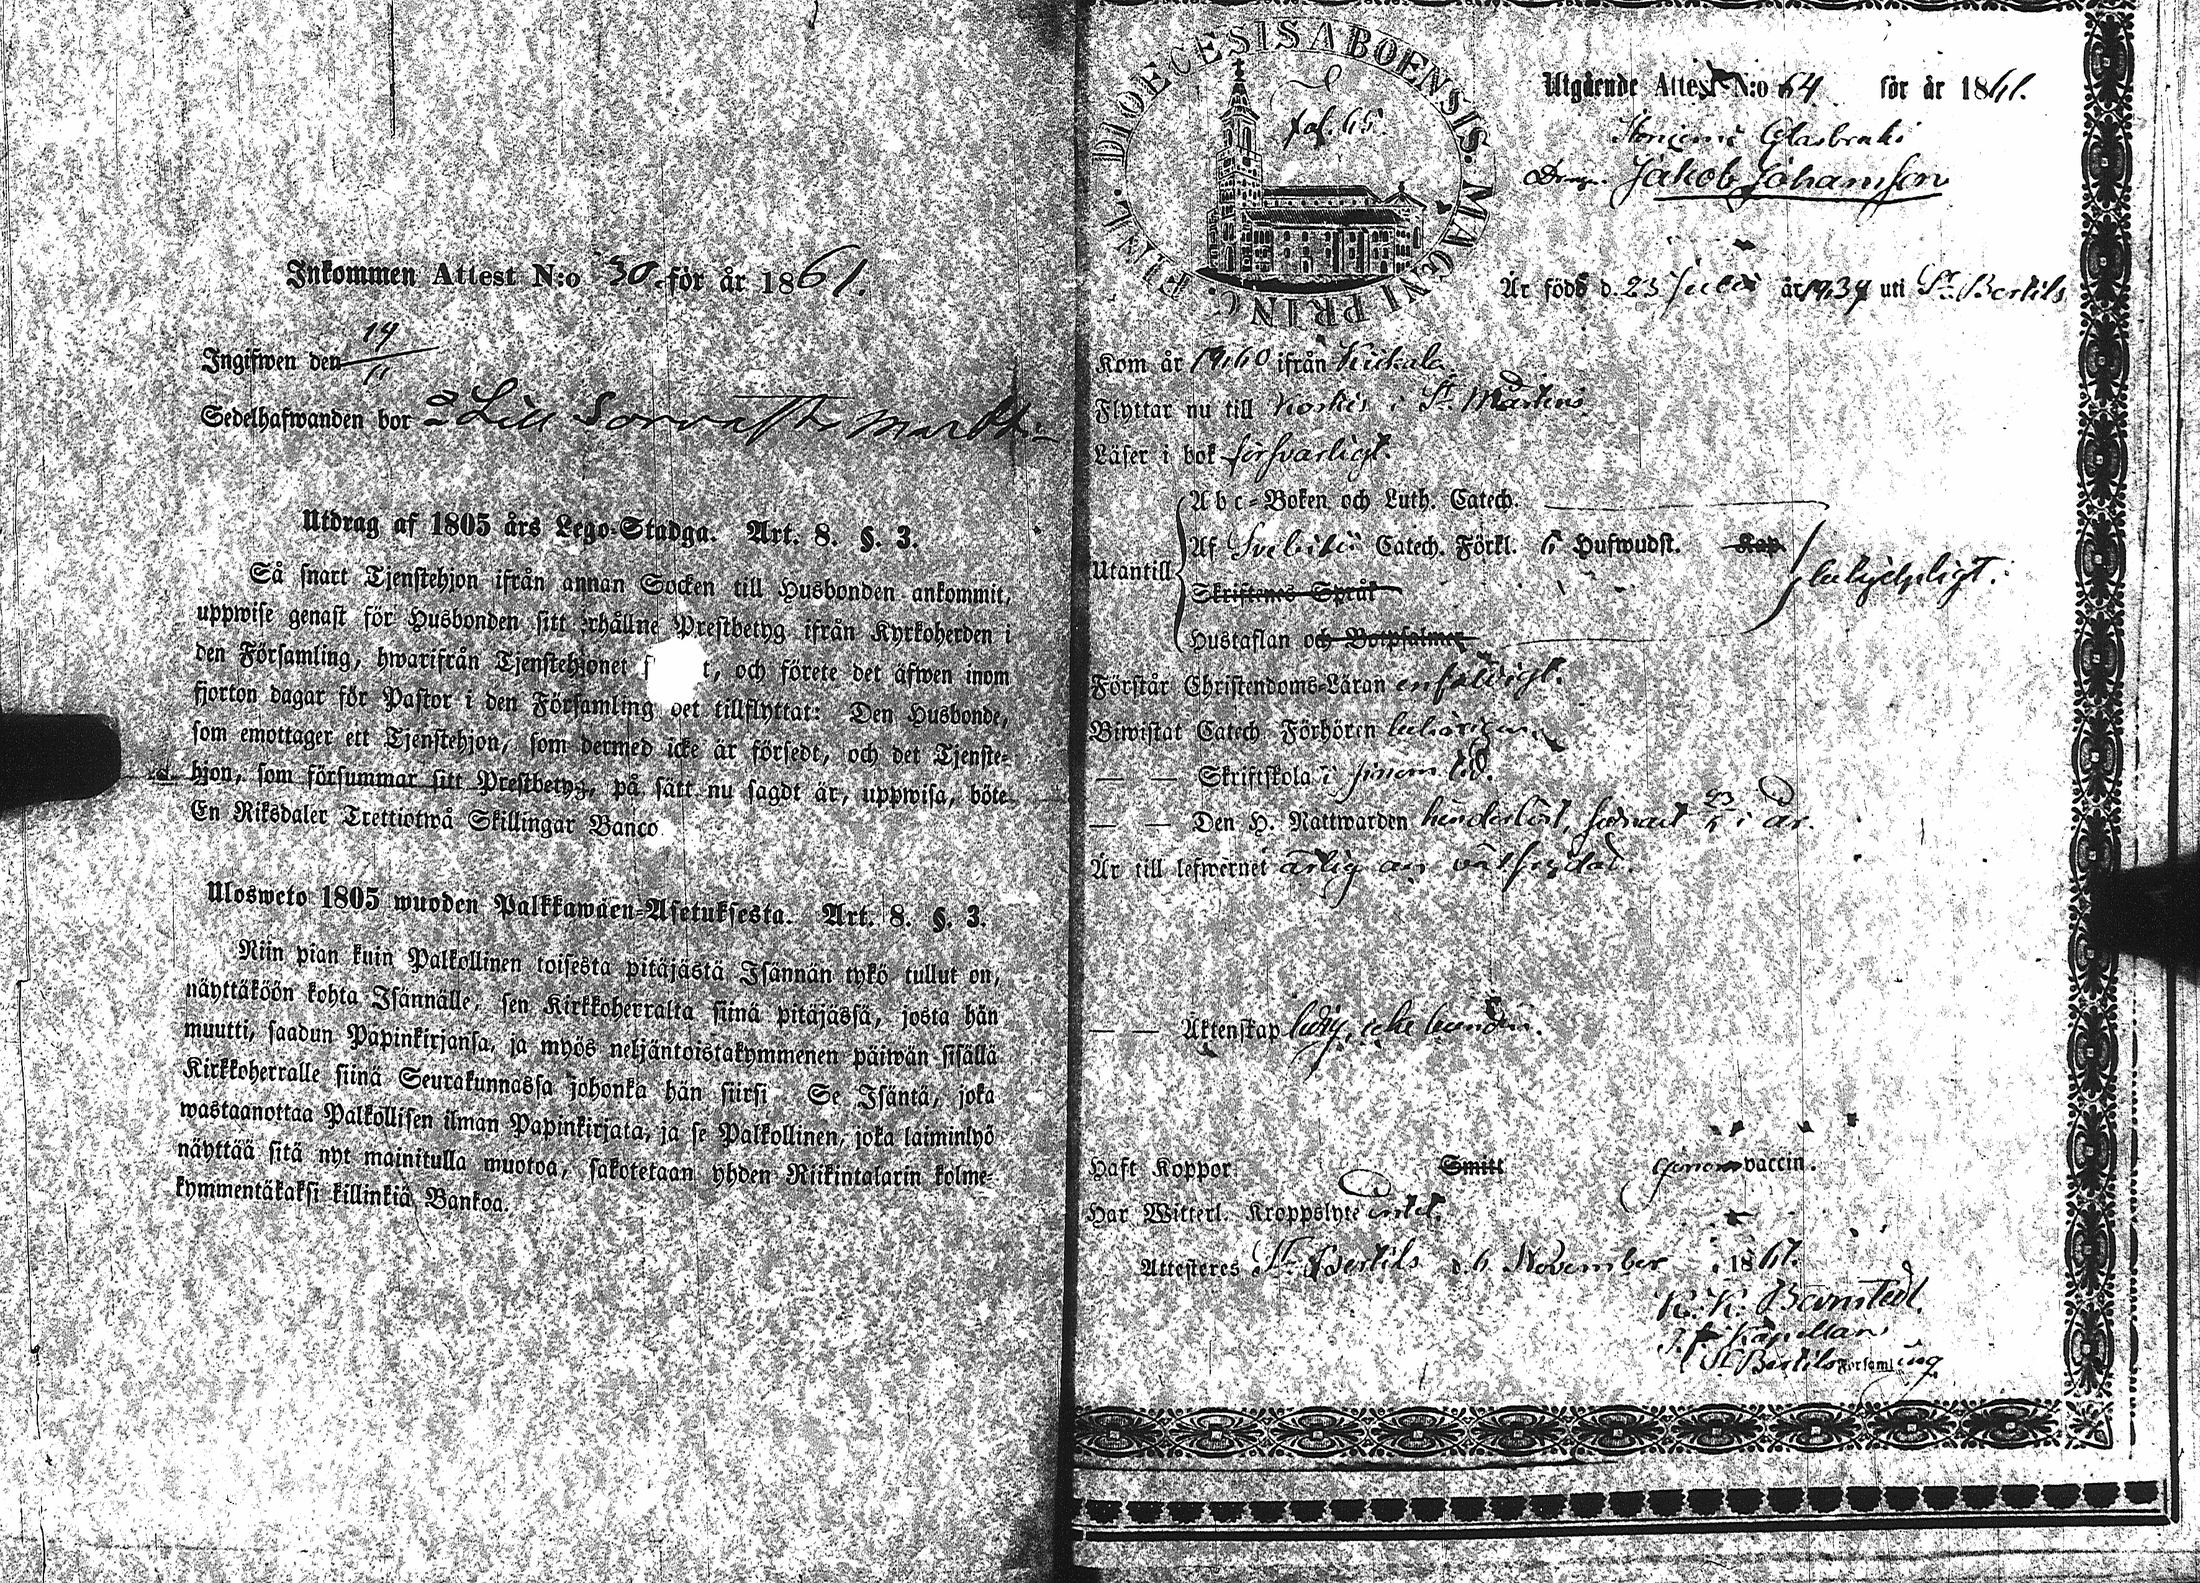 Inkommen Attest N:o 30 för år 1861.
Ingifwen den 14/11
Sedelhafwanden bor
Utdrag af 1805 års Lego-Stadga. Art. 8. §. 3.
Så snart Tjenstehjon ifrån annan Socken till Husbonden ankommit,
uppwise genast för Husbonden sitt erhållne Prestbetyg ifrån Kyrkoherden i
den Församling, hwarifrån Tjenstehjonet t, och förete det äfwen inom
fjorton dagar för Pastor i den Församling det tillflyttat: Den Husbonde,
som emottager ett Tjenstehjon, som dermed icke är försedt, och det Tjenste-
hjon, som försummar sitt Prestbetyg, på sätt nu sagdt är, uppwisa, böte
En Riksdaler Trettiotwå Skillingar Banco
Ulosweto 1805 wuoden Palkkawäen-Asetuksesta. Art. 8. §. 3.
Niin pian kuin Palkollinen toisesta pitäjästä Isännän tykö tullut on,
näyttäköön kohta Isännälle, sen Kirkkoherralta siinä pitäjässä, josta hän
muutti, saadun Papinkirjansa, ja myös neljäntoistakymmenen päiwän sisällä
Kirkkoherralle siinä Seurakunnassa johonka hän siirsi Se Isäntä, joka
wastaanottaa Palkollisen ilman Papinkirjata, ja se Palkollinen, joka laiminlyö
näyttää sitä nyt mainitulla muotoa, sakotetaan yhden Riikintalarin kolme-
kymmentäkaksi killinkiä Bankoa.
DIOECESIS ABOENSIS. MAGNI PRINC. FINL.
fol. 65.
Utgående Attest N:o 64 för år 1861.
Glasbruks
Dreng. Jakob Johansson
Är född d. 23 Julii år 1839 uti St. Bertils
Kom år 1860 ifrån Kiikala
Flyttar nu till Koskis i St. Mårtens.
Läser i bok försvarligt.
A b c-Boken och Luth. Catech.
Utantill Af Svebilii Catech. Förkl. 6 Hufwudst. Kap
Skriftenes Språk
Hustaflan och Botpsalmer
behjelpligt.
Förstår Christendoms-Läran enfaldigt.
Biwistat Catech. Förhören behörigen
— — Skriftskola i sinom tid.
— — Den H. Nattwarden hinderlöst, senast i år.
Är till lefwernet ärlig och välfrejdad.
— — Äktenskap ledig, icke bunden.
Haft Koppor: Smitt genom vaccin.
Har Witterl. Kroppslyte intet.
Attesteres St. Bertils d. 6 November 1861.
K. K.
Kapellan
St. Bertils Församling